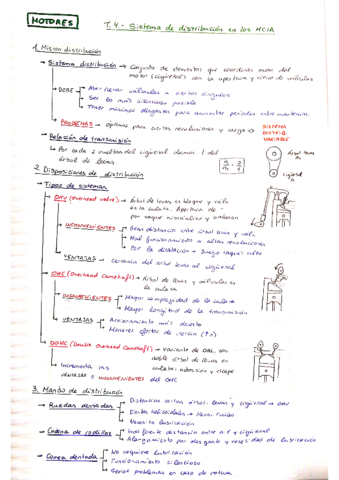 MOTORES
T.4.- Sistema de distribución en los MCIA
1. Misión distribución
→ Sistema distribución → Conjunto de elementos que coordinan mov. del
motor (cigüeñal) con la apertura y cierre de válvulas
→ DEBE
Abrir/cerrar válvulas a ciertos ángulos
Ser lo más silencioso posible
Tener mínimos desgastes para aumentar periodos entre mantenim.
PROBLEMAS → óptimas para ciertas revoluciones y carga → SISTEMA
DISTRIB.
VARIABLE
→ Relación de transmisión
↳ Por cada 2 vueltas del cigüeñal damos 1 del
árbol de levas
árbol levas
cigüeñal
2. Disposiciones de distribución
→ Tipos de sistemas
→ OHV (overhead valve) → Árbol de levas en bloque y válv
en la culata. Apertura de
por taqué, y balancín
→ INCONVENIENTES
Gran distancia entre árbol levas y valv.
Mal funcionamiento a altas revoluciones
Por la dilatación → Juego taqués
→ VENTAJAS → cercanía del árbol levas al cigüeñal
→ OHC (Overhead Camshaft) → Árbol de levas y válvulas en
la culata
→ INCONVENIENTES
Mayor complejidad de la culata
Mayor longitud de la transmisión
→ VENTAJAS
Accionamiento más directo
Menores efectos de inercia
→ DOHC (Double Overhead Camshaft) → variante de OHC con
doble árbol de levas en
culata: admisión y escape
→ Incrementa las
ventajas e INCONVENIENTES del OHC
3. Mando de distribución
→ Ruedas dentadas
Distancias cortas árbol levas y cigüeñal → OHV
Dientes helicoidales → Menor ruido
Necesita lubricación
→ Cadena de rodillos
Indiferente distancia entre a.l y cigüeñal
Alargamiento por desgaste y necesidad de lubricación
→ Correa dentada
No requiere lubricación
Funcionamiento silencioso
Serios problemas en caso de rotura